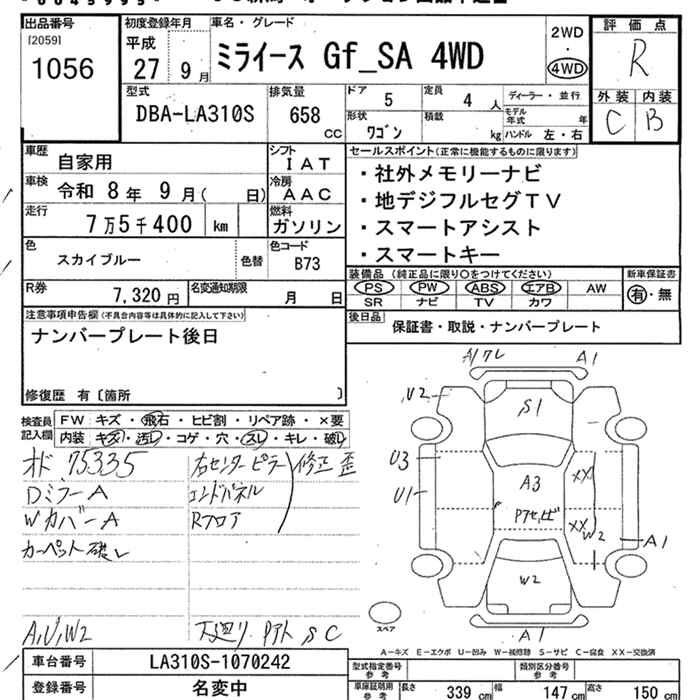 出品番号
[2059]
1056
初度登録年月
平成
27 9 月
車名・グレード
ミライース Gf_SA 4WD
2WD
・
4WD
評価点
R
外装 内装
C B
型式
DBA-LA310S
排気量
658
cc
ドア 5
定員 4 人
形状 ワゴン
積載 kg
ディーラー・並行
モデル年式 年
ハンドル 左・右
車歴 自家用
車検 令和 8 年 9 月( 日)
走行 7万5千400 km
色 スカイブルー 色替
シフト IAT
冷房 AAC
燃料 ガソリン
色コード B73
R券 7,320 円
名変通知期限 月 日
セールスポイント(正常に機能するものに限ります)
・社外メモリーナビ
・地デジフルセグTV
・スマートアシスト
・スマートキー
装備品 (純正品に限り○をつけてください)
PS PW ABS エアB AW
SR ナビ TV カワ
新車保証書
有・無
後日品 保証書・取説・ナンバープレート
注意事項申告欄(不具合内容等は具体的に記入して下さい)
ナンバープレート後日
修復歴 有〔箇所 〕
検査員記入欄
FW キズ・飛石・ヒビ割・リペア跡・×要
内装 キズ・汚れ・コゲ・穴・スレ・キレ・破れ
オド 75335
Dミラー A
Wカバー A
カーペット 破レ
右センターピラー
エンドパネル
Rフロア
修正 歪
A,U,W2
下廻り Pアト S C
A1ワレ
A1
U2
S1
U3
U1
A3
XX
XX
W2
A1
W2
A1
スペア
A−キズ E−エクボ U−凹み W−補修跡 S−サビ C−腐食 XX−交換済
車台番号 LA310S-1070242
登録番号 名変中
型式指定番号
参考
類別区分番号
参考
車庫証明用
参考
長さ 339 cm
幅 147 cm
高さ 150 cm